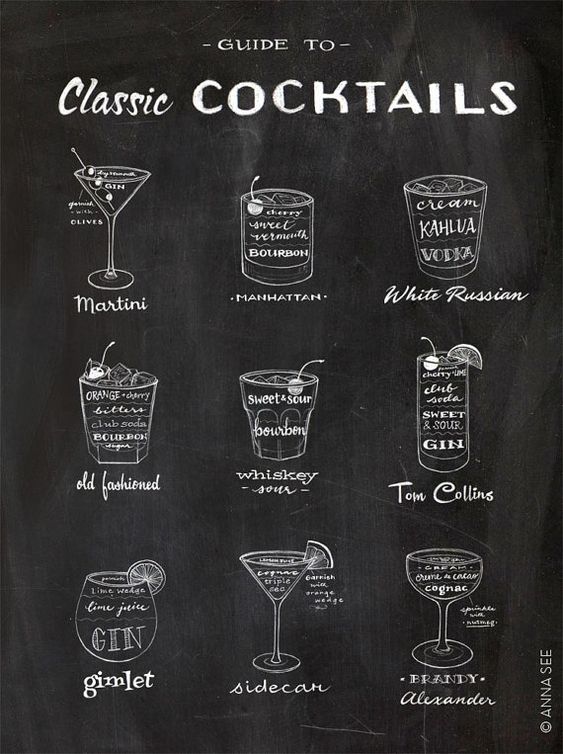 - GUIDE TO -
Classic COCKTAILS
dry vermouth
GIN
garnish
- with -
OLIVES
Martini
cherry
sweet
vermouth
BOURBON
· MANHATTAN ·
cream
KAHLUA
VODKA
White Russian
ORANGE + cherry
bitters
club soda
BOURBON
sugar
old fashioned
sweet & sour
bourbon
whiskey
- sour -
garnish
cherry + LIME
club
soda
SWEET
& SOUR
GIN
Tom Collins
garnish
lime wedge
lime juice
GIN
gimlet
LEMON JUICE
cognac
triple
sec
Garnish
with
orange
wedge
sidecar
- CREAM -
creme de cacao
cognac
sprinkle
with
· nutmeg ·
· BRANDY ·
Alexander
© ANNA SEE